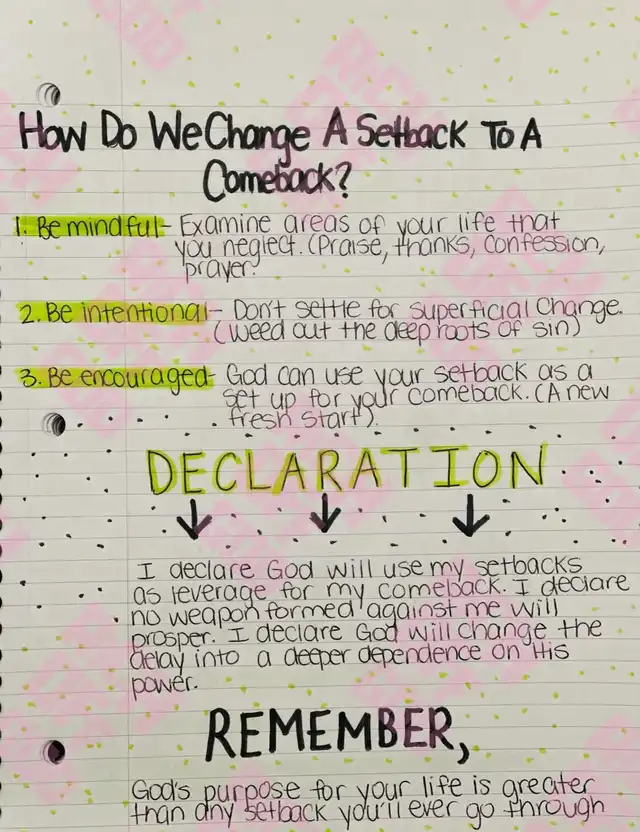 How Do We Change A Setback To A
Comeback?
1. Be mindful- Examine areas of your life that
you neglect. (Praise, thanks, confession,
prayer.
2. Be intentional- Don't settle for superficial Change.
(weed out the deep roots of sin)
3. Be encouraged- God can use your setback as a
set up for your comeback. (A new
fresh start).
DECLARATION
I declare God will use my setbacks
as leverage for my comeback. I declare
no weapon formed against me will
prosper. I declare God will change the
delay into a deeper dependence on His
power.
REMEMBER,
God's purpose for your life is greater
than any setback you'll ever go through